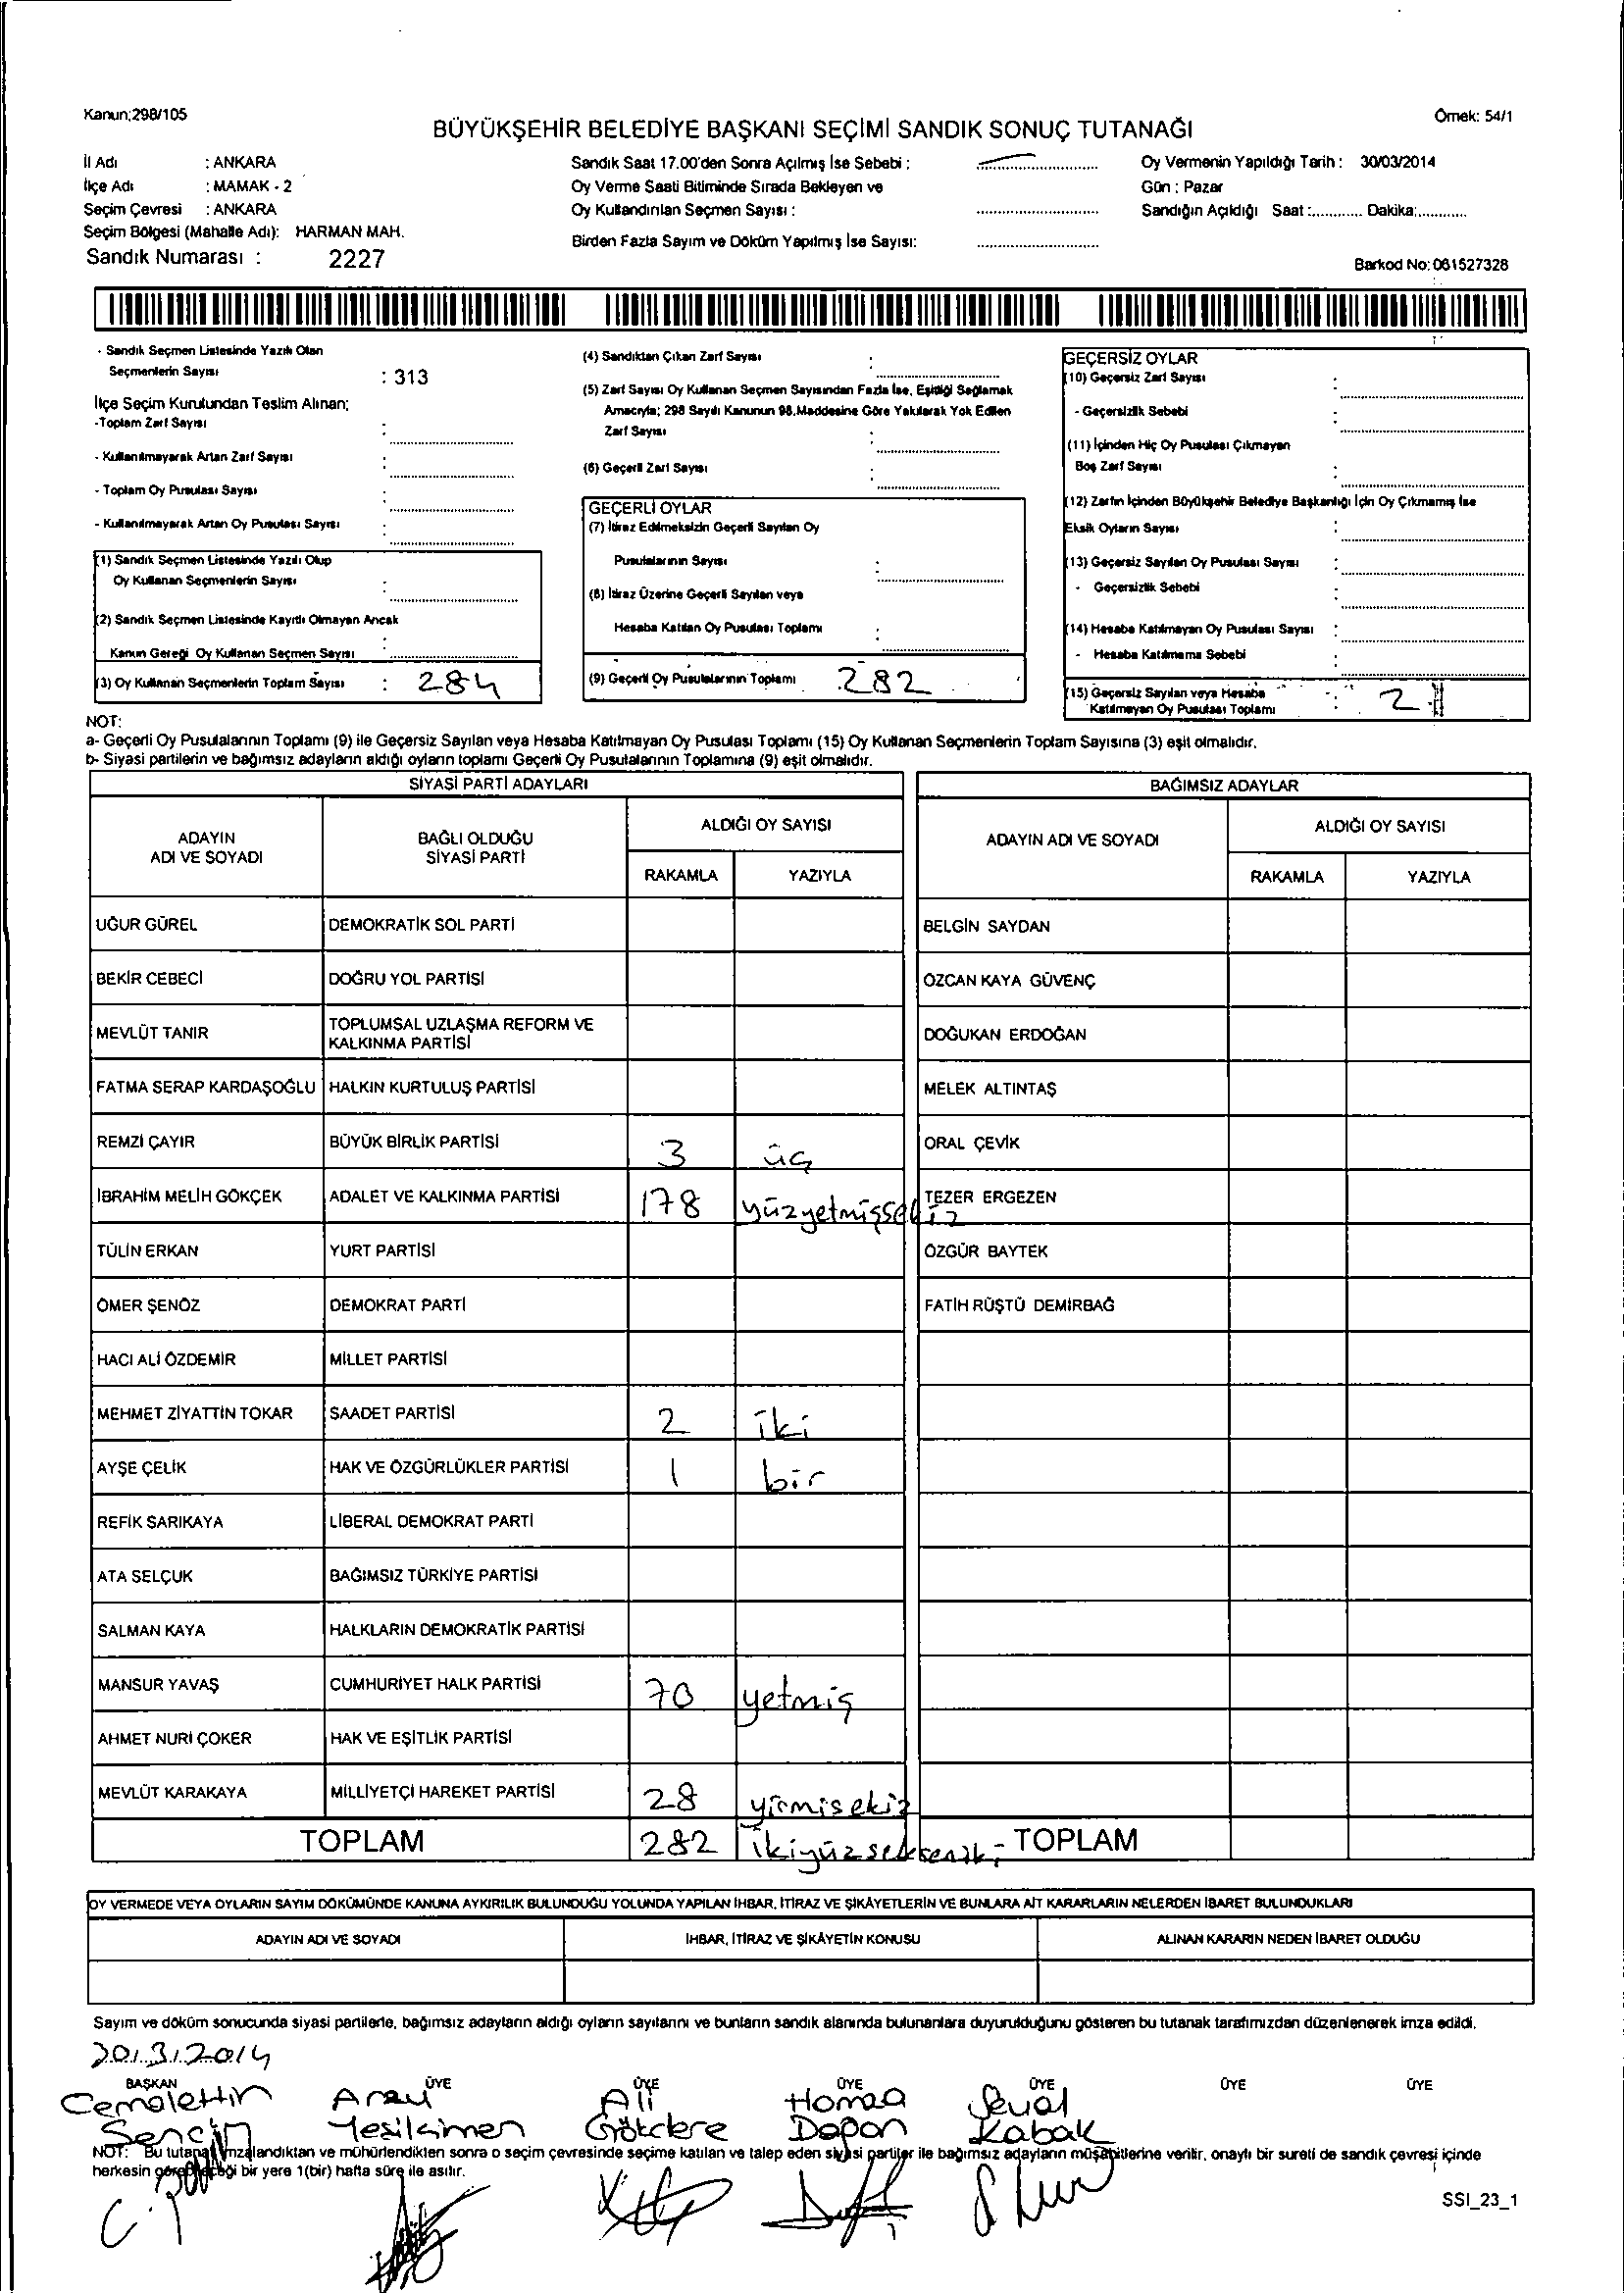 Kanun;298/105
Örnek: 54/1
BÜYÜKŞEHİR BELEDİYE BAŞKANI SEÇİMİ SANDIK SONUÇ TUTANAĞI
İl Adı : ANKARA
İlçe Adı : MAMAK - 2
Seçim Çevresi : ANKARA
Seçim Bölgesi (Mahalle Adı): HARMAN MAH.
Sandık Numarası : 2227
Sandık Saat 17.00'den Sonra Açılmış İse Sebebi :
Oy Verme Saati Bitiminde Sırada Bekleyen ve
Oy Kullandırılan Seçmen Sayısı :
Birden Fazla Sayım ve Döküm Yapılmış İse Sayısı:
Oy Vermenin Yapıldığı Tarih : 30/03/2014
Gün : Pazar
Sandığın Açıldığı Saat :............ Dakika:............
Barkod No: 061527328
- Sandık Seçmen Listesinde Yazılı Olan
Seçmenlerin Sayısı : 313
İlçe Seçim Kurulundan Teslim Alınan;
-Toplam Zarf Sayısı :
- Kullanılmayarak Artan Zarf Sayısı :
- Toplam Oy Pusulası Sayısı :
- Kullanılmayarak Artan Oy Pusulası Sayısı :
(1) Sandık Seçmen Listesinde Yazılı Olup
Oy Kullanan Seçmenlerin Sayısı :
(2) Sandık Seçmen Listesinde Kayıtlı Olmayan Ancak
Kanun Gereği Oy Kullanan Seçmen Sayısı :
(3) Oy Kullanan Seçmenlerin Toplam Sayısı : 284
(4) Sandıktan Çıkan Zarf Sayısı :
(5) Zarf Sayısı Oy Kullanan Seçmen Sayısından Fazla İse, Eşitliği Sağlamak
Amacıyla; 298 Sayılı Kanunun 98.Maddesine Göre Yakılarak Yok Edilen
Zarf Sayısı :
(6) Geçerli Zarf Sayısı :
GEÇERLİ OYLAR
(7) İtiraz Edilmeksizin Geçerli Sayılan Oy
Pusulalarının Sayısı :
(8) İtiraz Üzerine Geçerli Sayılan veya
Hesaba Katılan Oy Pusulası Toplamı :
(9) Geçerli Oy Pusulalarının Toplamı : 282
GEÇERSİZ OYLAR
(10) Geçersiz Zarf Sayısı :
- Geçersizlik Sebebi :
(11) İçinden Hiç Oy Pusulası Çıkmayan
Boş Zarf Sayısı :
(12) Zarfın İçinden Büyükşehir Belediye Başkanlığı İçin Oy Çıkmamış İse
Eksik Oyların Sayısı :
(13) Geçersiz Sayılan Oy Pusulası Sayısı :
- Geçersizlik Sebebi :
(14) Hesaba Katılmayan Oy Pusulası Sayısı :
- Hesaba Katılmama Sebebi :
(15) Geçersiz Sayılan veya Hesaba
Katılmayan Oy Pusulası Toplamı : 2
NOT:
a- Geçerli Oy Pusulalarının Toplamı (9) ile Geçersiz Sayılan veya Hesaba Katılmayan Oy Pusulası Toplamı (15) Oy Kullanan Seçmenlerin Toplam Sayısına (3) eşit olmalıdır.
b- Siyasi partilerin ve bağımsız adayların aldığı oyların toplamı Geçerli Oy Pusulalarının Toplamına (9) eşit olmalıdır.
SİYASİ PARTİ ADAYLARI
BAĞIMSIZ ADAYLAR
ADAYIN ADI VE SOYADI
BAĞLI OLDUĞU SİYASİ PARTİ
ALDIĞI OY SAYISI
RAKAMLA YAZIYLA
ADAYIN ADI VE SOYADI
ALDIĞI OY SAYISI
RAKAMLA YAZIYLA
UĞUR GÜREL DEMOKRATİK SOL PARTİ BELGİN SAYDAN
BEKİR CEBECİ DOĞRU YOL PARTİSİ ÖZCAN KAYA GÜVENÇ
MEVLÜT TANIR TOPLUMSAL UZLAŞMA REFORM VE KALKINMA PARTİSİ DOĞUKAN ERDOĞAN
FATMA SERAP KARDAŞOĞLU HALKIN KURTULUŞ PARTİSİ MELEK ALTINTAŞ
REMZİ ÇAYIR BÜYÜK BİRLİK PARTİSİ 3 üç ORAL ÇEVİK
İBRAHİM MELİH GÖKÇEK ADALET VE KALKINMA PARTİSİ 178 yüzyetmişsekiz TEZER ERGEZEN
TÜLİN ERKAN YURT PARTİSİ ÖZGÜR BAYTEK
ÖMER ŞENÖZ DEMOKRAT PARTİ FATİH RÜŞTÜ DEMİRBAĞ
HACI ALİ ÖZDEMİR MİLLET PARTİSİ
MEHMET ZİYATTİN TOKAR SAADET PARTİSİ 2 iki
AYŞE ÇELİK HAK VE ÖZGÜRLÜKLER PARTİSİ 1 bir
REFİK SARIKAYA LİBERAL DEMOKRAT PARTİ
ATA SELÇUK BAĞIMSIZ TÜRKİYE PARTİSİ
SALMAN KAYA HALKLARIN DEMOKRATİK PARTİSİ
MANSUR YAVAŞ CUMHURİYET HALK PARTİSİ 70 yetmiş
AHMET NURİ ÇOKER HAK VE EŞİTLİK PARTİSİ
MEVLÜT KARAKAYA MİLLİYETÇİ HAREKET PARTİSİ 28 yirmisekiz
TOPLAM 282 ikiyüzsekseniki TOPLAM
OY VERMEDE VEYA OYLARIN SAYIM DÖKÜMÜNDE KANUNA AYKIRILIK BULUNDUĞU YOLUNDA YAPILAN İHBAR, İTİRAZ VE ŞİKÂYETLERİN VE BUNLARA AİT KARARLARIN NELERDEN İBARET BULUNDUKLARI
ADAYIN ADI VE SOYADI İHBAR, İTİRAZ VE ŞİKÂYETİN KONUSU ALINAN KARARIN NEDEN İBARET OLDUĞU
Sayım ve döküm sonucunda siyasi partilerle, bağımsız adayların aldığı oyların sayılarını ve bunların sandık alanında bulunanlara duyurulduğunu gösteren bu tutanak tarafımızdan düzenlenerek imza edildi.
30/3/2014
BAŞKAN ÜYE ÜYE ÜYE ÜYE ÜYE ÜYE
Cemalettin Arzu Ali
Yeşilçimen Gökdere Kabak
NOT: Bu tutanak imzalandıktan ve mühürlendikten sonra o seçim çevresinde seçime katılan ve talep eden siyasi partiler ile bağımsız adayların müşahitlerine verilir, onaylı bir sureti de sandık çevresi içinde
herkesin görebileceği bir yere 1(bir) hafta süre ile asılır.
SSI_23_1